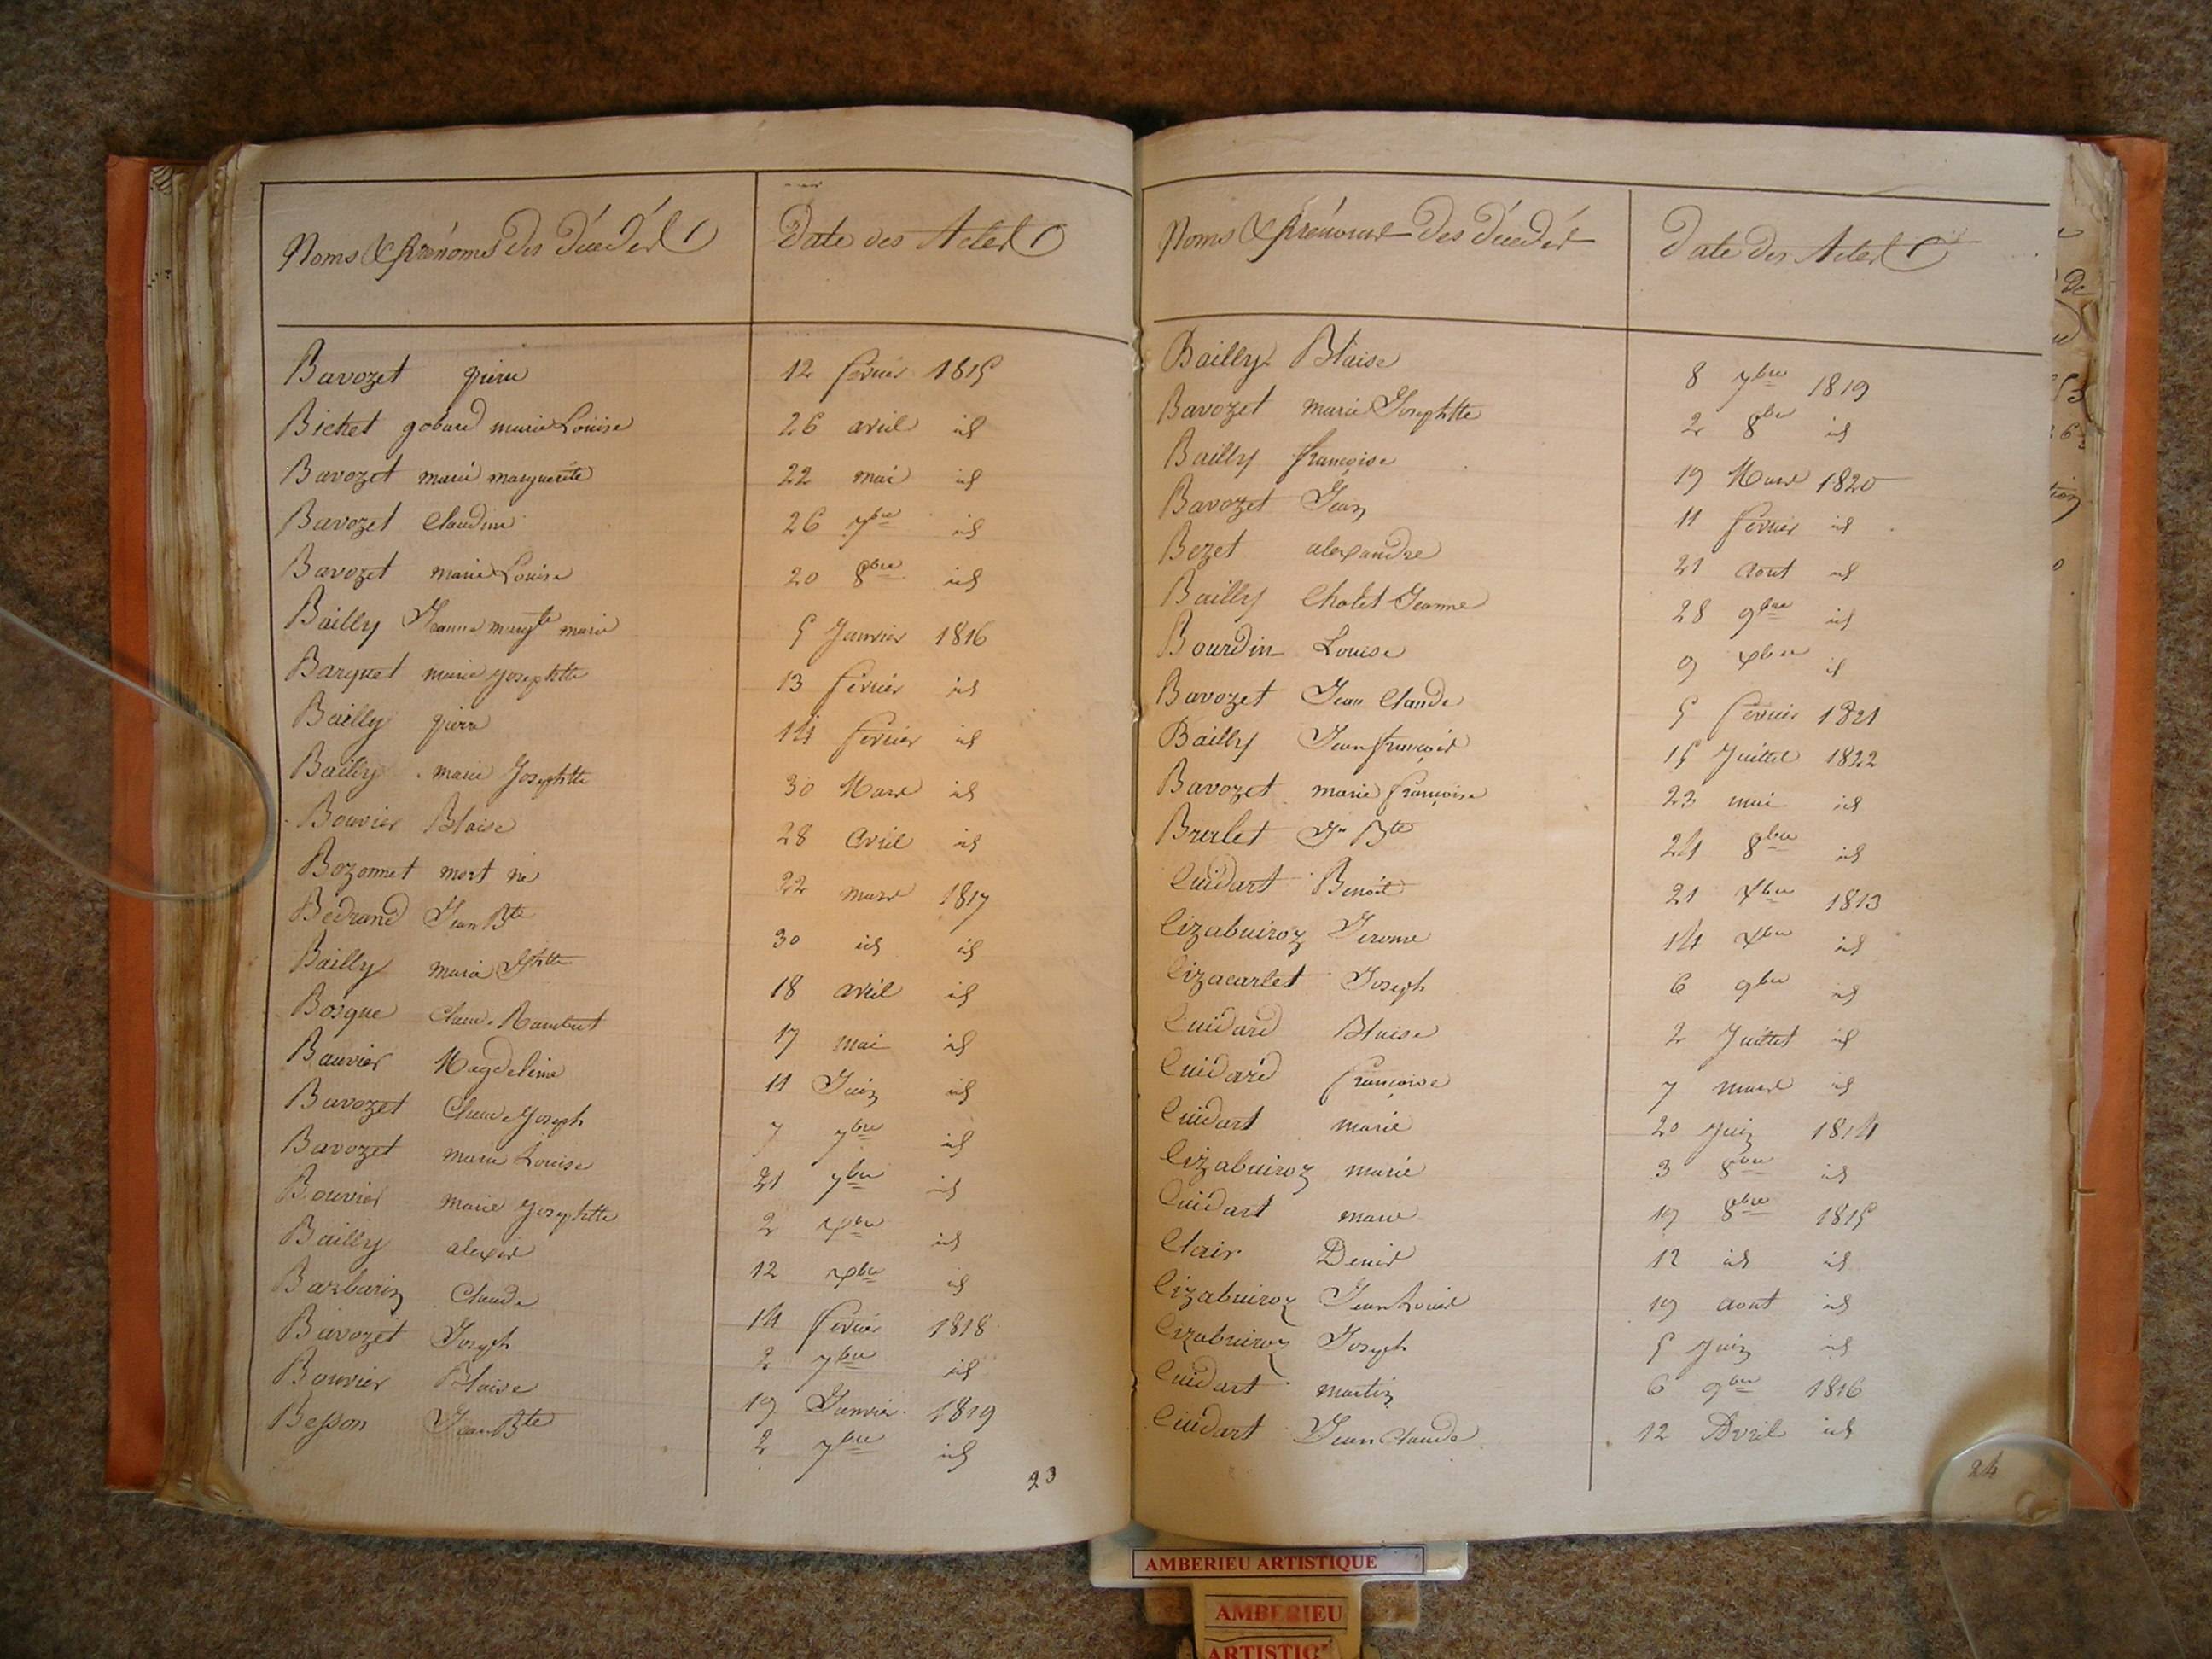 Noms & prénoms des décédés Date des Actes
Bavozet pierre 12 février 1815
Bichet gobard marie Louise 26 avril id
Bavozet marie marguerite 22 mai id
Bavozet Claudine 26 7bre id
Bavozet marie Louise 20 8bre id
Bailly Jeanne margte marie 5 Janvier 1816
Barquet marie josephtte 13 février id
Bailly pierre 14 fevrier id
Bailly marie Josephtte 30 Mars id
Bouvier Blaise 28 Avril id
Bozonnet mort né 22 mars 1817
Bedrand Jean Bte 30 id id
Bailly marie Jphtte 18 avril id
Bosque Claude Rambert 17 mai id
Bauvier Magdeleine 11 Juin id
Bavozet Claude Joseph 7 7bre id
Bavozet marie Louise 21 7bre id
Bouvier marie josephtte 2 xbre id
Bailly alexis 12 xbre id
Barbarin Claude 14 fevrier 1818
Bavozet Joseph 2 7bre id
Bouvier Blaise 19 Janvier 1819
Besson Jean Bte 2 7bre id
23
Noms & prénoms des décédés Date des Actes
Bailly Blaise 8 7bre 1819
Bavozet marie Josephtte 2 8bre id
Bailly françoise 19 Mars 1820
Bavozet Jean 11 février id
Bezet alexandre 21 Aout id
Bailly Cholet Jeanne 28 9bre id
Bourdin Louise 9 xbre id
Bavozet Jean Claude 5 fevrier 1821
Bailly Jean françois 15 Juillet 1822
Bavozet marie françoise 23 mai id
Brulet Jn Bte 24 8bre id
Cuidart Benoit 21 xbre 1813
Cizabuiroz Jerome 14 xbre id
Cizacarlet Joseph 6 9bre id
Cuidard Blaise 2 Juillet id
Cuidard françoise 7 mars id
Cuidart marie 20 Juin 1814
Cizabuiroz marie 3 8bre id
Cuidart marie 19 8bre 1815
Clair Denis 12 id id
Cizabuiroz Jean Louis 19 aout id
Cizabuiroz Joseph 5 Juin id
Cuidart martin 6 9bre 1816
Cuidart Jean Claude 12 Avril id
24
AMBERIEU ARTISTIQUE
AMBERIEU